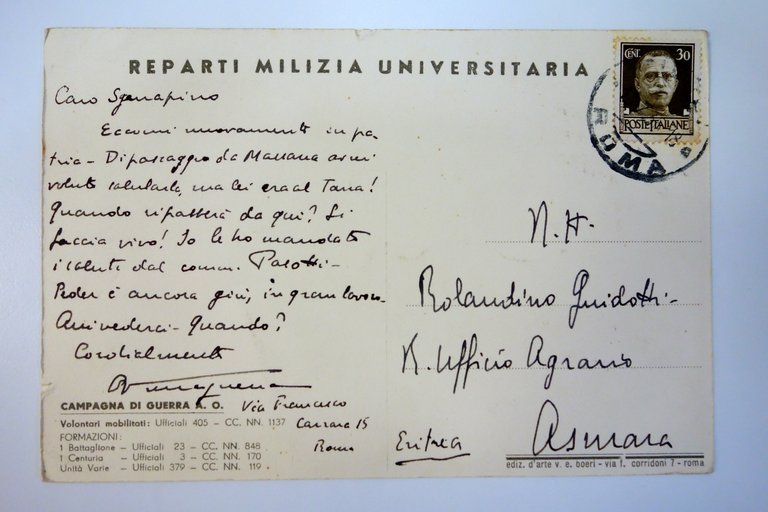 REPARTI MILIZIA UNIVERSITARIA
CENT. 30
POSTE ITALIANE
ROMA
Caro
Eccomi nuovamente in pa-
tria - Di passaggio da Massaua avrei
voluto salutarla, ma lei era al Tana!
Quando ripasserà da qui? Si
faccia vivo! Io le ho mandato
i saluti dal comm. Parotti -
è ancora giù, in gran lavoro.
Arrivederci - Quando?
Cordialmente
Via Francesco
Carrara 15
Roma
N. H.
Rolandino Guidotti -
R. Ufficio Agrario
Asmara
Eritrea
CAMPAGNA DI GUERRA A. O.
Volontari mobilitati: Ufficiali 405 - CC. NN. 1137
FORMAZIONI:
1 Battaglione - Ufficiali 23 - CC. NN. 848
1 Centuria - Ufficiali 3 - CC. NN. 170
Unità Varie - Ufficiali 379 - CC. NN. 119
ediz. d'arte v. e. boeri - via f. corridoni 7 - roma